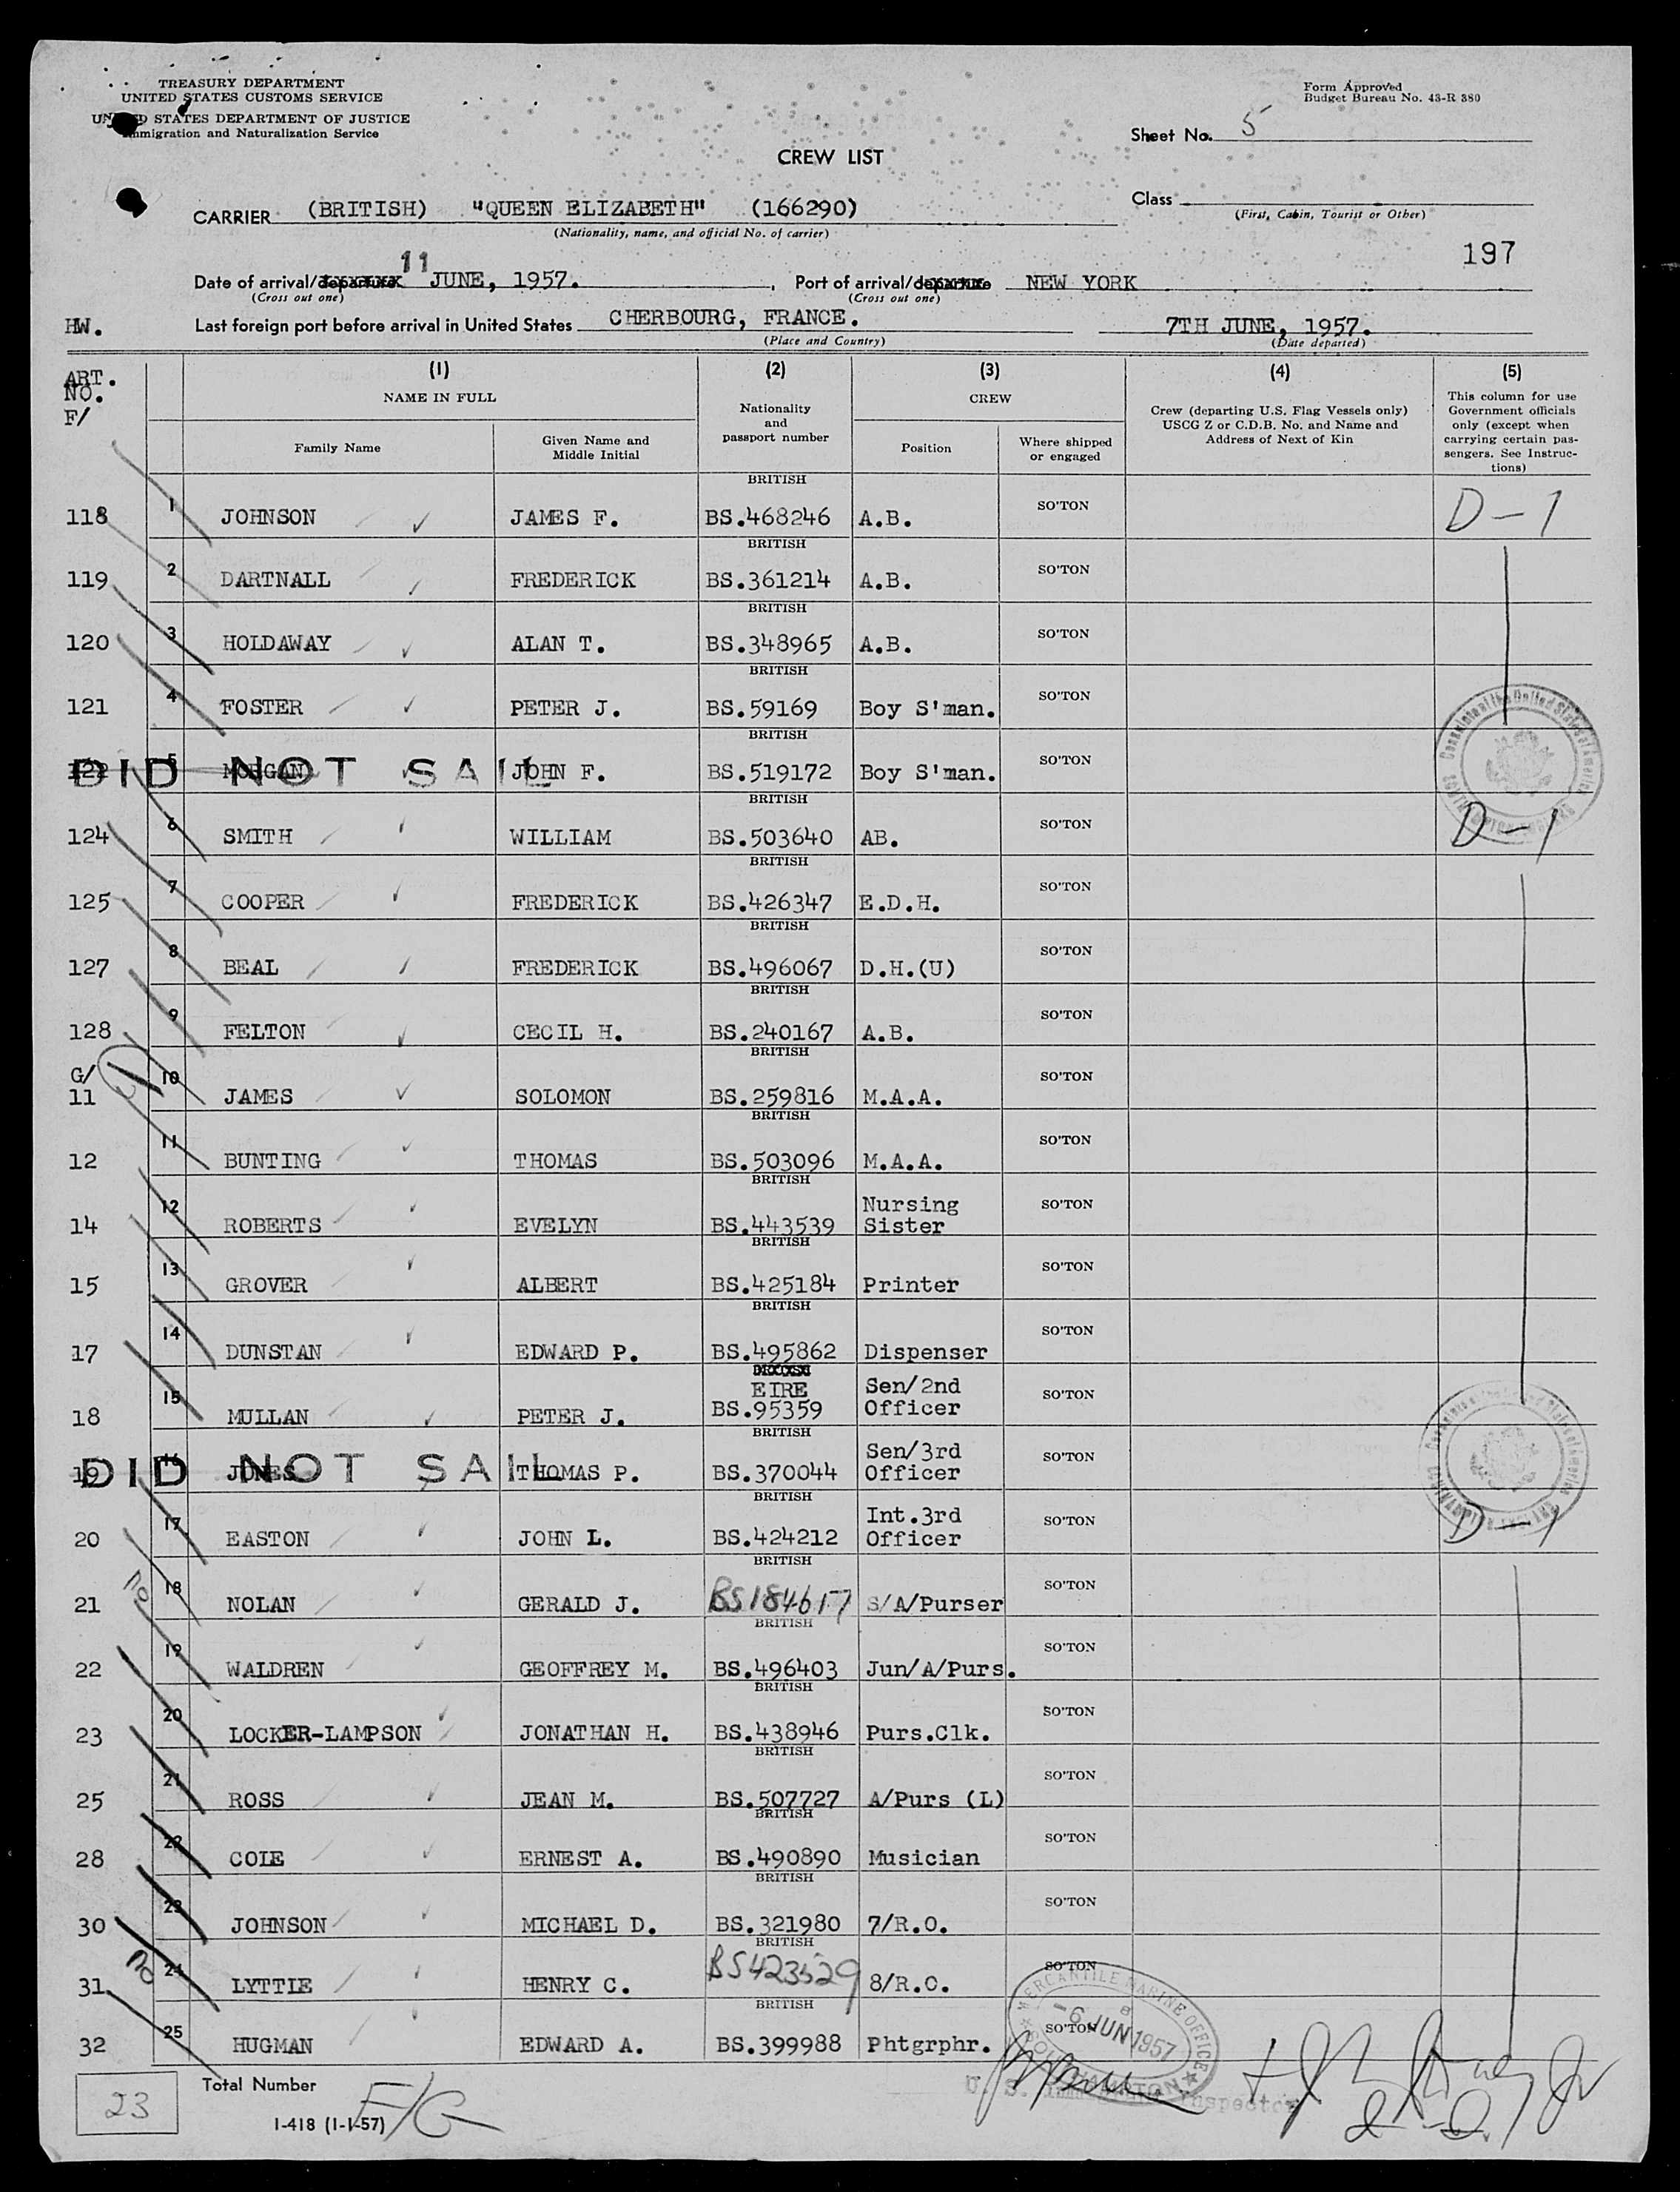 TREASURY DEPARTMENT
UNITED STATES CUSTOMS SERVICE
STATES DEPARTMENT OF JUSTICE
Immigration and Naturalization Service
Form Approved
Budget Bureau No. 43-R 380
Sheet No. 5
CREW LIST
CARRIER (BRITISH) "QUEEN ELIZABETH" (166290)
(Nationality, name, and official No. of carrier)
Class
(First, Cabin, Tourist or Other)
197
Date of arrival/departure 11 JUNE, 1957. , Port of arrival/departure NEW YORK
(Cross out one) (Cross out one)
HW. Last foreign port before arrival in United States CHERBOURG, FRANCE. 7TH JUNE, 1957.
(Place and Country) (Date departed)
ART. NO. F/
(1) (2) (3) (4) (5)
NAME IN FULL
Family Name
Given Name and Middle Initial
Nationality and passport number
CREW
Position
Where shipped or engaged
Crew (departing U.S. Flag Vessels only) USCG Z or C.D.B. No. and Name and Address of Next of Kin
This column for use Government officials only (except when carrying certain passengers. See Instructions)
118 1 JOHNSON JAMES F. BRITISH BS.468246 A.B. SO'TON D-1
119 2 DARTNALL FREDERICK BRITISH BS.361214 A.B. SO'TON
120 3 HOLDAWAY ALAN T. BRITISH BS.348965 A.B. SO'TON
121 4 FOSTER PETER J. BRITISH BS.59169 Boy S'man. SO'TON
122 5 MORGAN JOHN F. BRITISH BS.519172 Boy S'man. SO'TON
DID NOT SAIL
124 6 SMITH WILLIAM BRITISH BS.503640 AB. SO'TON D-1
125 7 COOPER FREDERICK BRITISH BS.426347 E.D.H. SO'TON
127 8 BEAL FREDERICK BRITISH BS.496067 D.H.(U) SO'TON
128 9 FELTON CECIL H. BRITISH BS.240167 A.B. SO'TON
G/
11 10 JAMES SOLOMON BRITISH BS.259816 M.A.A. SO'TON
12 11 BUNTING THOMAS BRITISH BS.503096 M.A.A. SO'TON
14 12 ROBERTS EVELYN BRITISH BS.443539 Nursing Sister SO'TON
15 13 GROVER ALBERT BRITISH BS.425184 Printer SO'TON
17 14 DUNSTAN EDWARD P. BRITISH BS.495862 Dispenser SO'TON
18 15 MULLAN PETER J. EIRE BS.95359 Sen/2nd Officer SO'TON
19 16 JONES THOMAS P. BRITISH BS.370044 Sen/3rd Officer SO'TON
DID NOT SAIL
20 17 EASTON JOHN L. BRITISH BS.424212 Int.3rd Officer SO'TON D-1
21 no 18 NOLAN GERALD J. BRITISH BS184617 S/A/Purser SO'TON
22 19 WALDREN GEOFFREY M. BRITISH BS.496403 Jun/A/Purs. SO'TON
23 20 LOCKER-LAMPSON JONATHAN H. BRITISH BS.438946 Purs.Clk. SO'TON
25 21 ROSS JEAN M. BRITISH BS.507727 A/Purs (L) SO'TON
28 22 COLE ERNEST A. BRITISH BS.490890 Musician SO'TON
30 23 JOHNSON MICHAEL D. BRITISH BS.321980 7/R.O. SO'TON
31 no 24 LYTTLE HENRY C. BRITISH BS423529 8/R.O. SO'TON
32 25 HUGMAN EDWARD A. BRITISH BS.399988 Phtgrphr. SO'TON
MERCANTILE MARINE OFFICE
-6 JUN 1957
SOUTHAMPTON
U. S. Inspector
23 Total Number
F/G
I-418 (1-1-57)